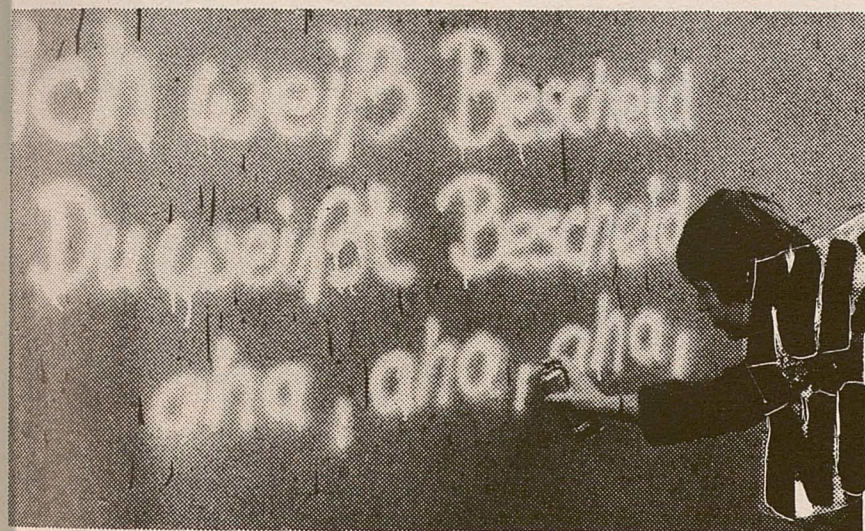 Ich weiß Bescheid
Du weißt Bescheid
aha, aha, aha,